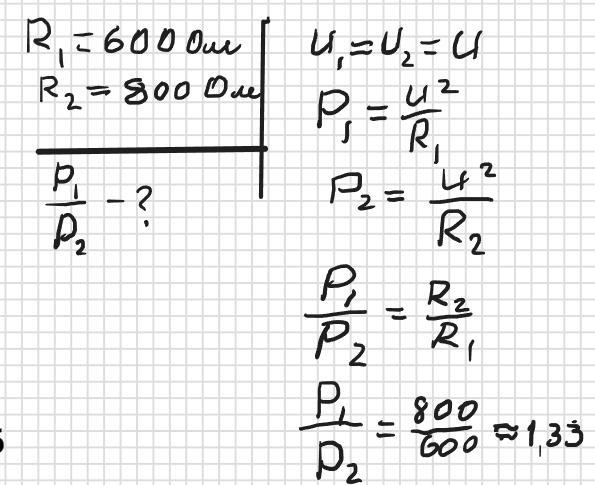 R₁ = 600 Ом
R₂ = 800 Ом
P₁/P₂ – ?
U₁ = U₂ = U
P₁ = U²/R₁
P₂ = U²/R₂
P₁/P₂ = R₂/R₁
P₁/P₂ = 800/600 ≈ 1,33